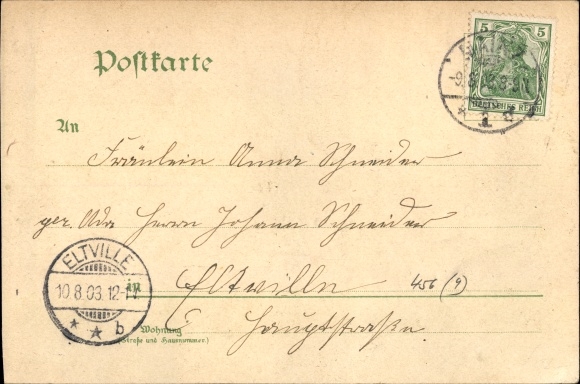 Postkarte
5 5
DEUTSCHES REICH
An
Fräulein Anna Schneider
Herrn Johann Schneider
ELTVILLE
10.8.03.12-1V.
* * b
in Eltville 456 (9)
Wohnung
(Straße und Hausnummer.)
Hauptstraße